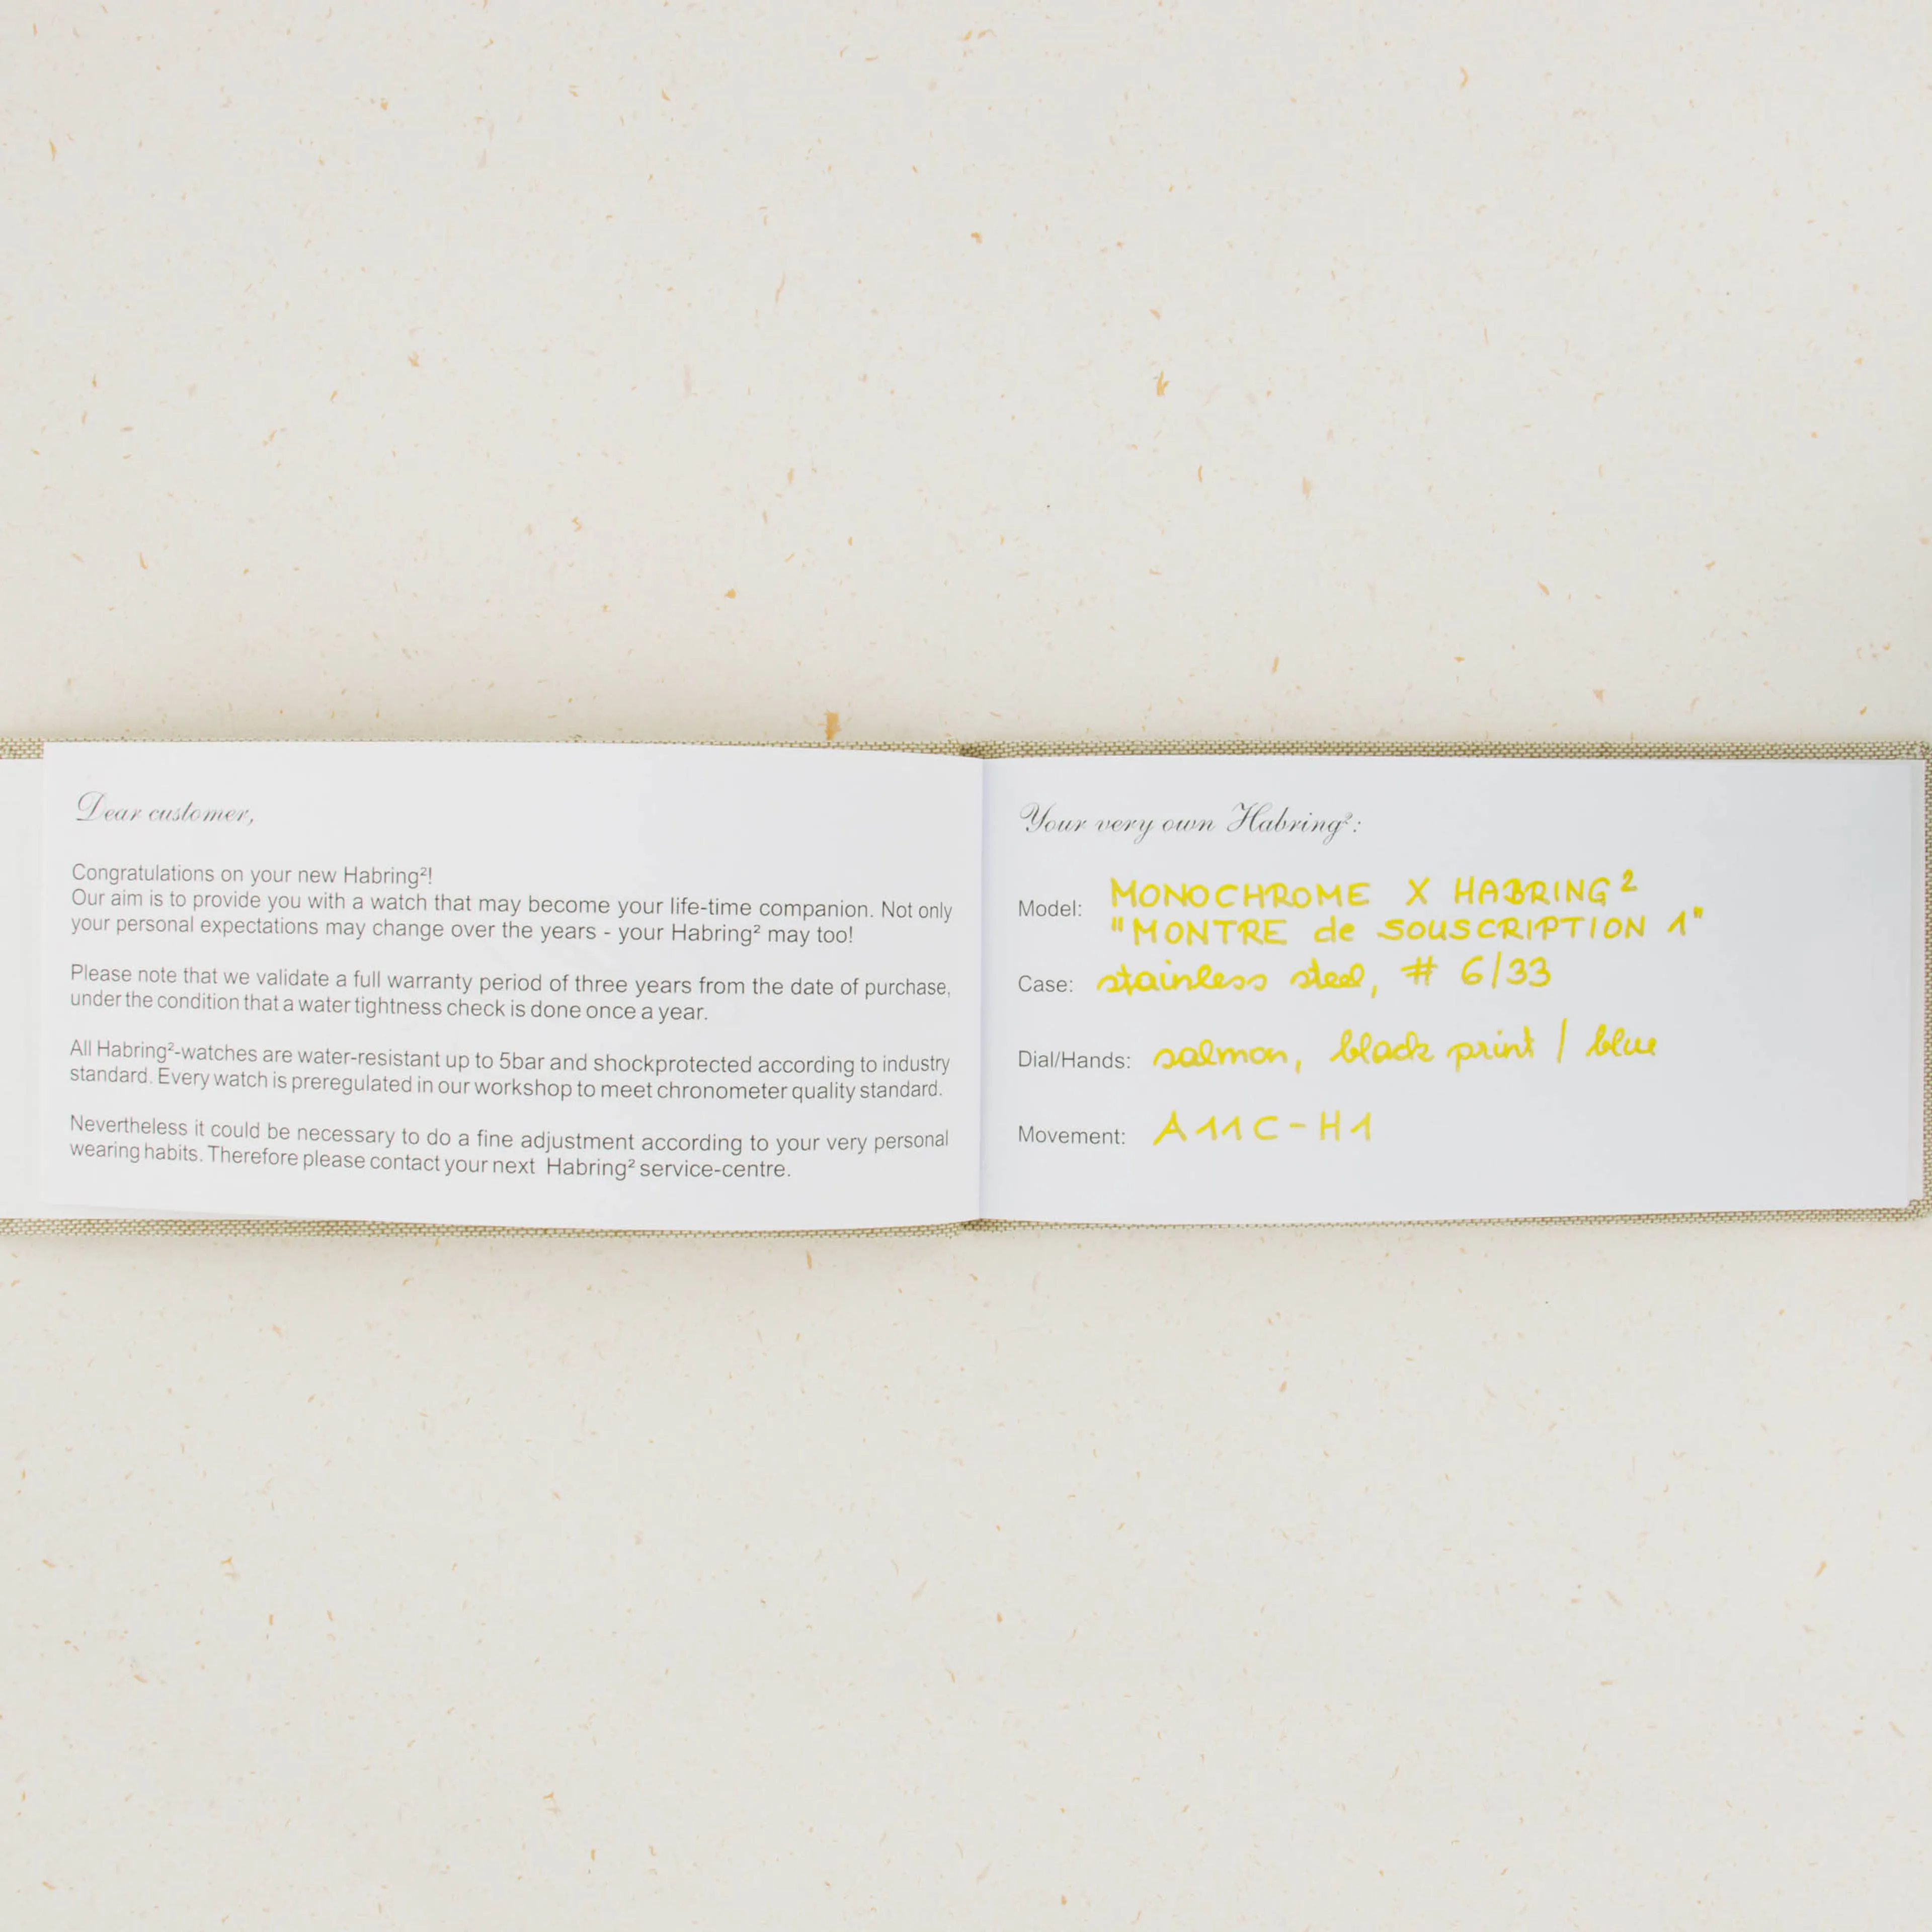 Dear customer,
Congratulations on your new Habring²!
Our aim is to provide you with a watch that may become your life-time companion. Not only
your personal expectations may change over the years - your Habring² may too!
Please note that we validate a full warranty period of three years from the date of purchase,
under the condition that a water tightness check is done once a year.
All Habring²-watches are water-resistant up to 5bar and shockprotected according to industry
standard. Every watch is preregulated in our workshop to meet chronometer quality standard.
Nevertheless it could be necessary to do a fine adjustment according to your very personal
wearing habits. Therefore please contact your next Habring² service-centre.
Your very own Habring²:
Model: MONOCHROME X HABRING²
"MONTRE de SOUSCRIPTION 1"
Case: stainless steel, # 6/33
Dial/Hands: salmon, black print / blue
Movement: A11C-H1